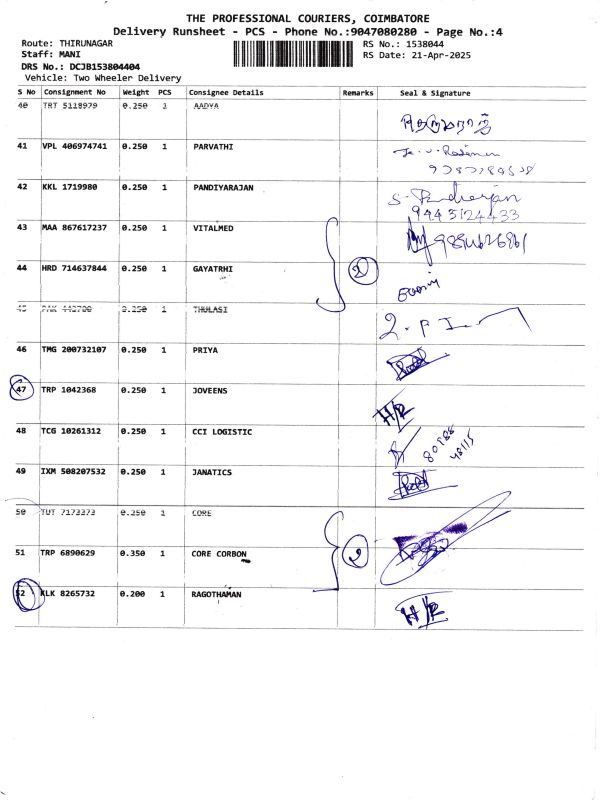 THE PROFESSIONAL COURIERS, COIMBATORE
Delivery Runsheet - PCS - Phone No.:9047080280 - Page No.:4
Route: THIRUNAGAR RS No.: 1538044
Staff: MANI RS Date: 21-Apr-2025
DRS No.: DCJB153804404
Vehicle: Two Wheeler Delivery
S No Consignment No Weight PCS Consignee Details Remarks Seal & Signature
40 TRT 5118979 0.250 1 AADYA
41 VPL 406974741 0.250 1 PARVATHI
42 KKL 1719980 0.250 1 PANDIYARAJAN
9443124433
43 MAA 867617237 0.250 1 VITALMED
44 HRD 714637844 0.250 1 GAYATRHI 2
45 0.250 1 THULASI
46 TMG 200732107 0.250 1 PRIYA
47 TRP 1042368 0.250 1 JOVEENS H/R
48 TCG 10261312 0.250 1 CCI LOGISTIC
49 IXM 508207532 0.250 1 JANATICS
50 TUT 7173373 0.250 1 CORE
51 TRP 6890629 0.350 1 CORE CORBON 2
52 KLK 8265732 0.200 1 RAGOTHAMAN H/R